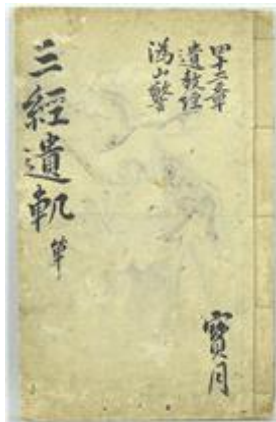 四十二章
遺教經
潙山警
三經遺軌 單
寶月